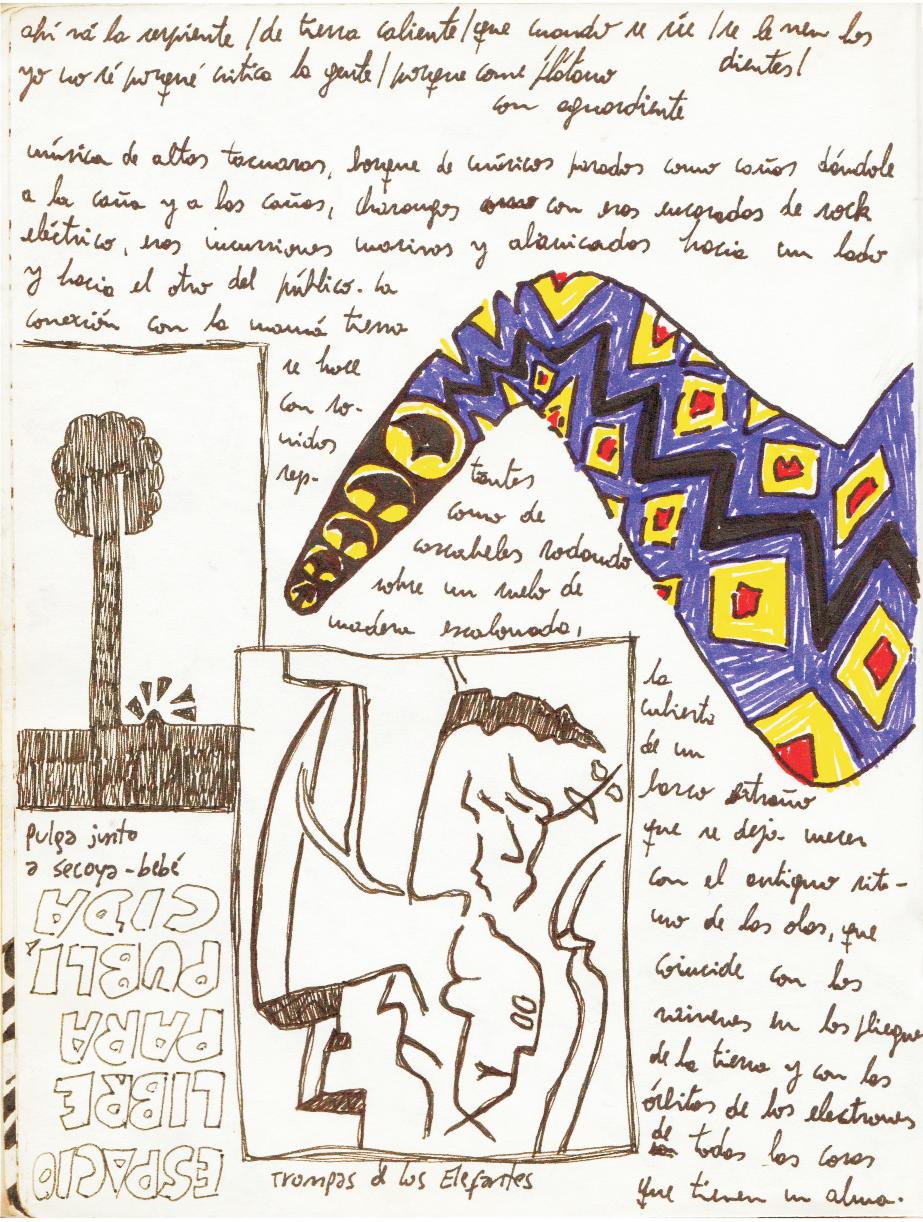 ahi vá la serpiente / de tierra caliente / que cuando se ríe / se le ven los
dientes /
yo no sé porqué critica la gente / porque come plátano
con aguardiente
música de altas tacuaras, bosque de músicos parados como caños dándole
a la caña y a las cañas, charangos con esos encorados de rock
eléctrico, esas incursiones marinas y abanicados hacia un lado
y hacia el otro del público. La
conexión con la mamá tierra
se hace
con so-
nidos
rep-
tantes
como de
cascabeles rodando
sobre un suelo de
madera escalonada,
la
cubierta
de un
barco extraño
que se deja mecer
con el antiguo rit-
mo de las olas, que
coincide con los
vaivenes en los pliegues
de la tierra y con las
órbitas de los electrones
de todas las cosas
que tienen un alma.
pulga junto
a secoya-bebé
ESPACIO
LIBRE
PARA
PUBLI
CIDA
Trompas de los Elefantes